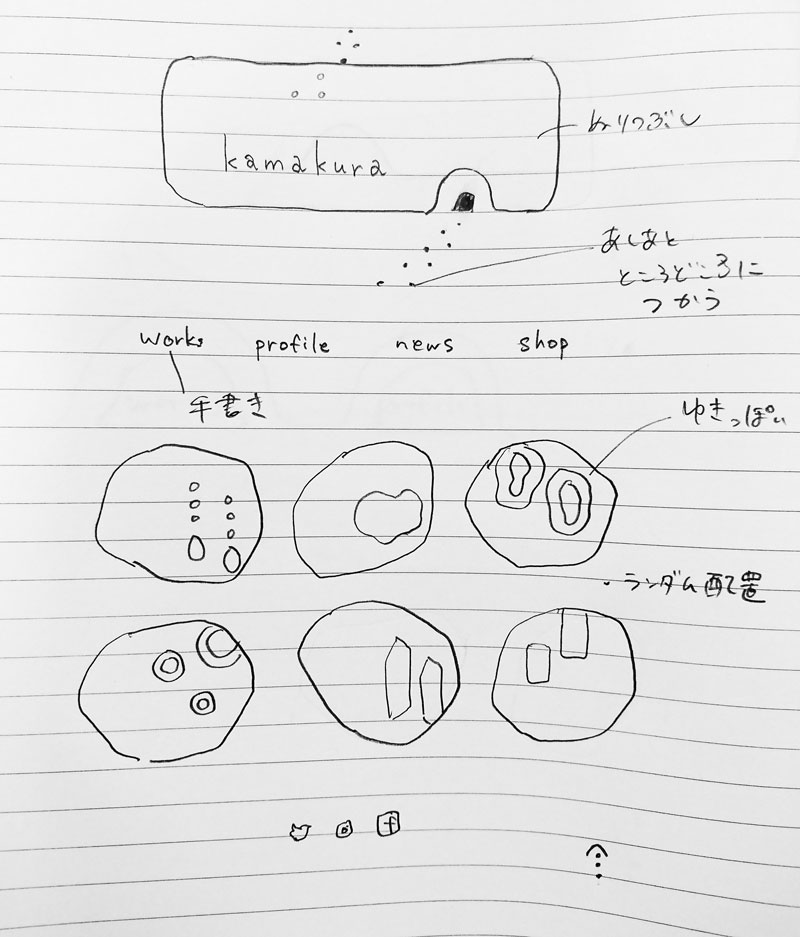 kamakura
ぬりつぶし
あしあと
ところどころに
つかう
works profile news shop
手書き
ゆきっぽい
・ランダム配置
f